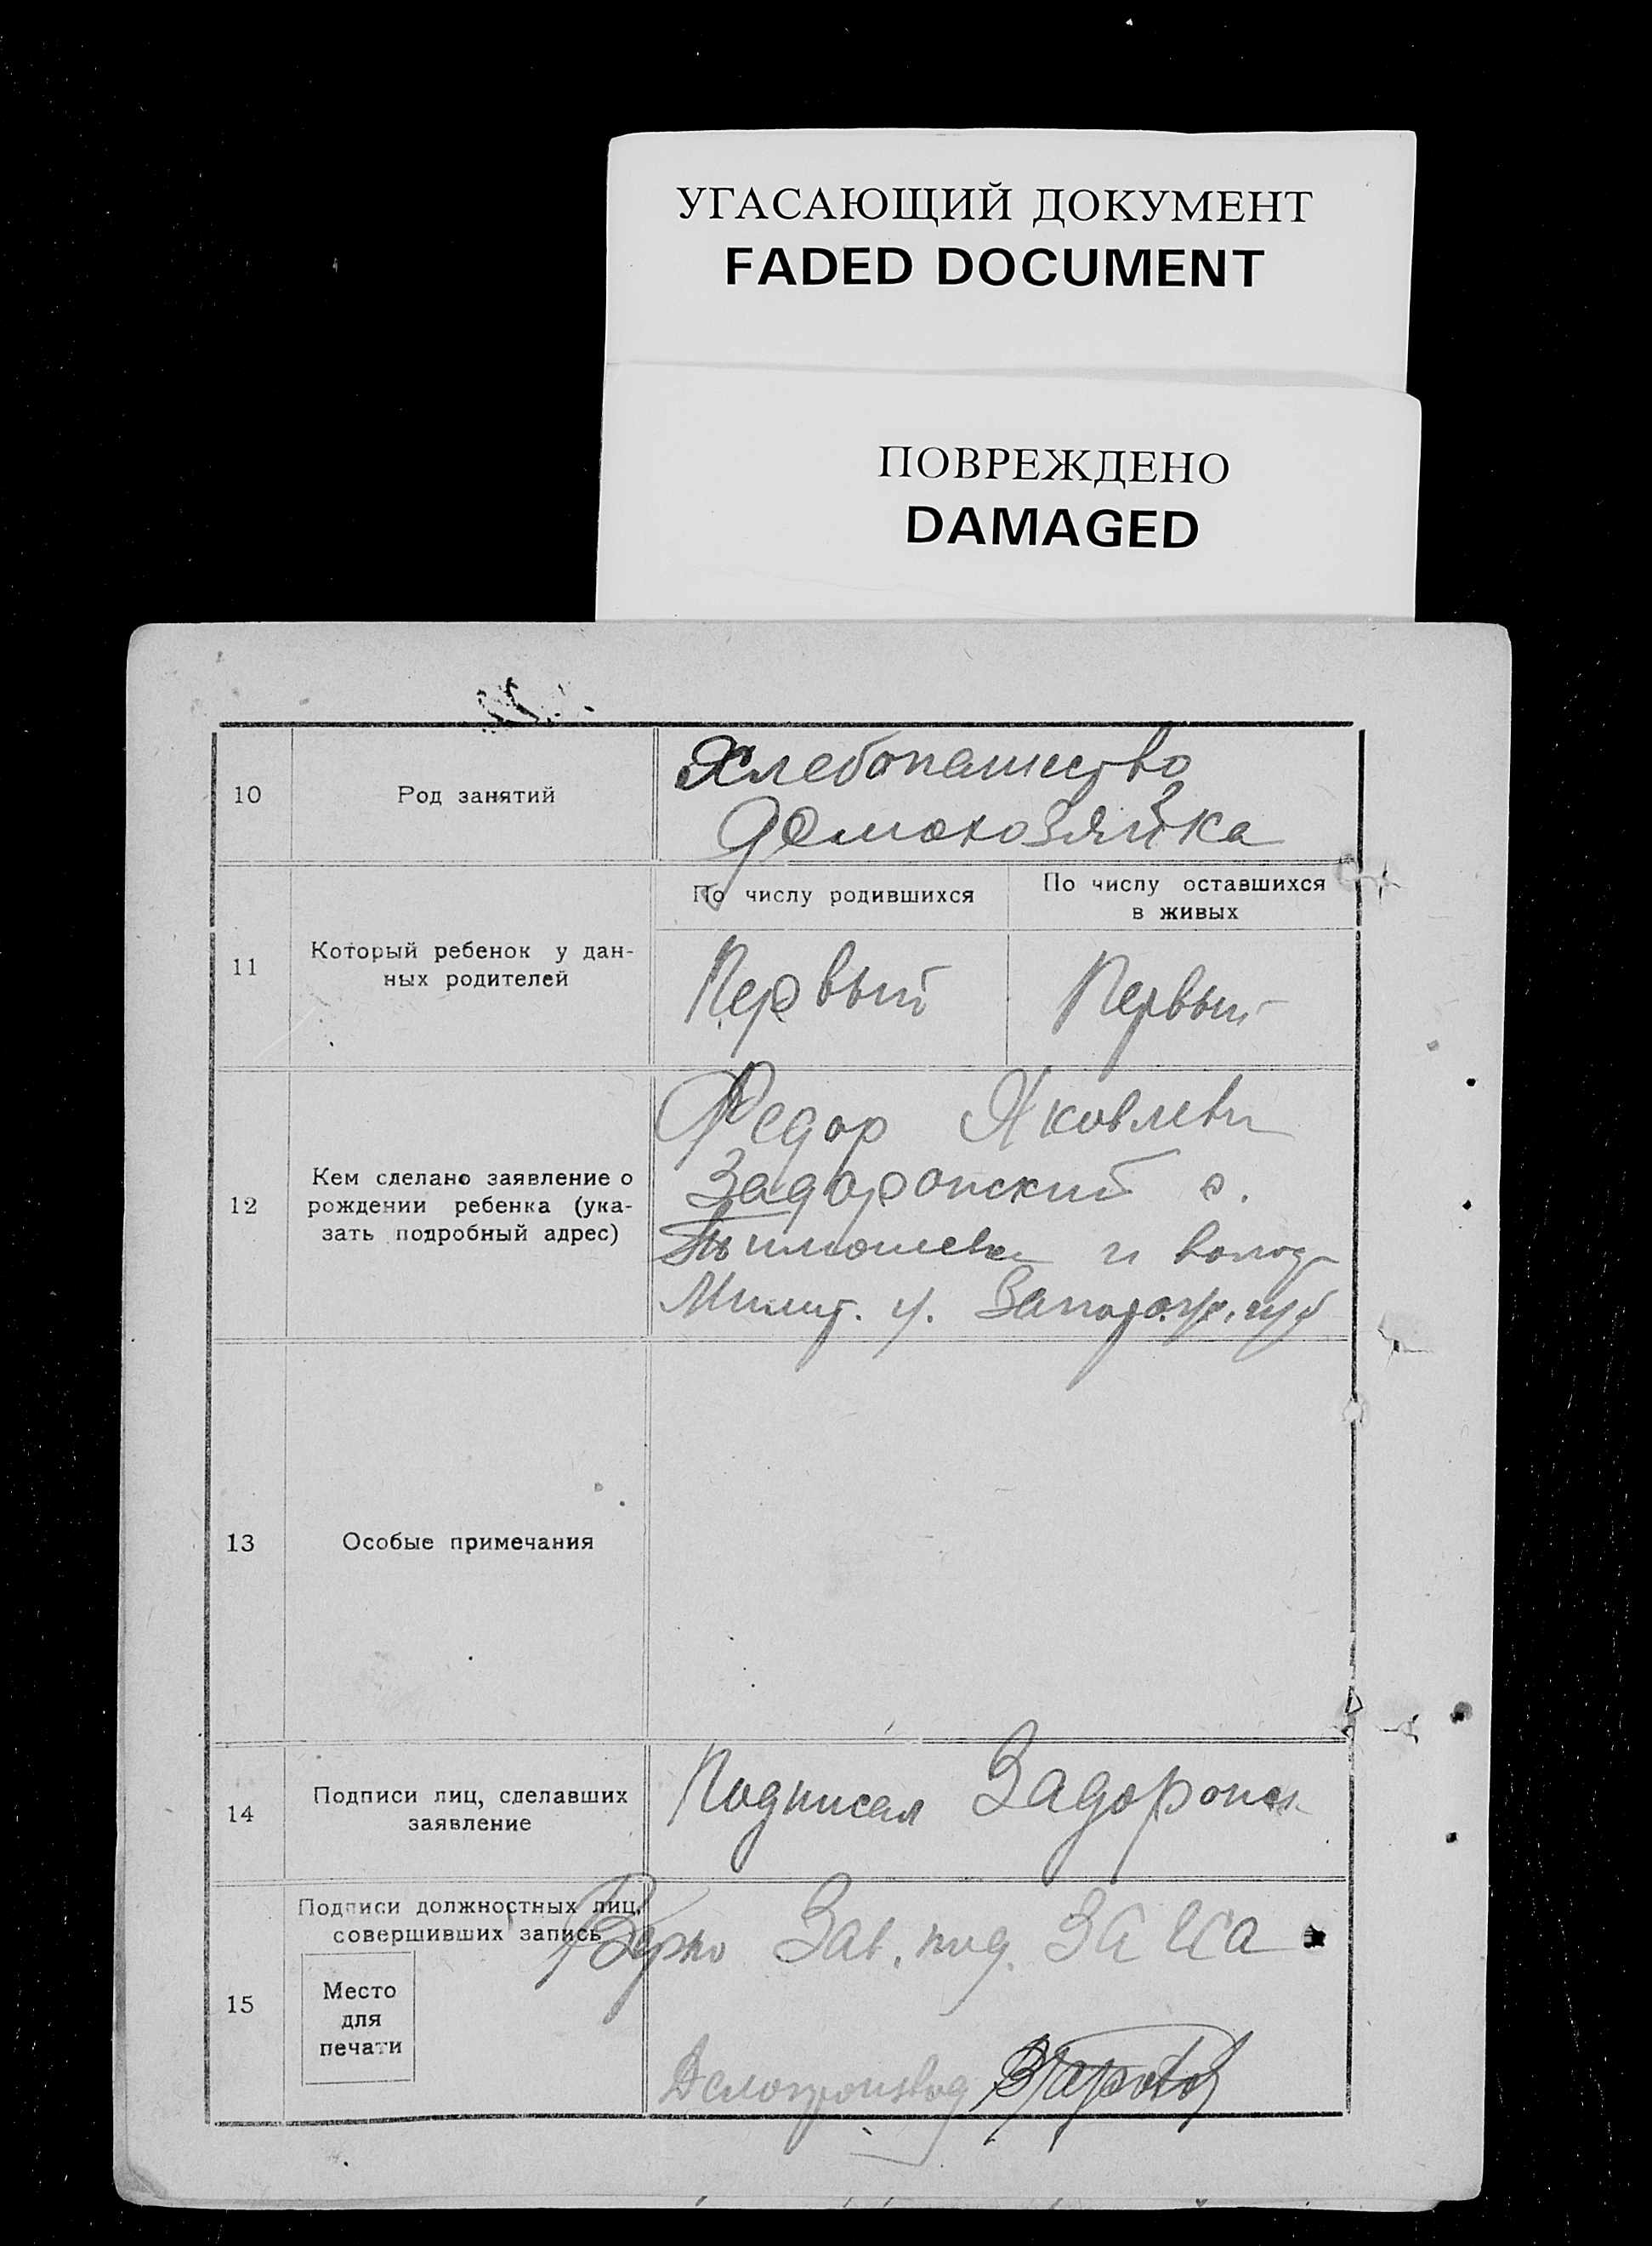 УГАСАЮЩИЙ ДОКУМЕНТ
FADED DOCUMENT
ПОВРЕЖДЕНО
DAMAGED
10
Род занятий
Хлебопашество
Домохозяйка
11
Который ребенок у дан-
ных родителей
По числу родившихся
Первый
По числу оставшихся
в живых
Первый
12
Кем сделано заявление о
рождении ребенка (ука-
зать подробный адрес)
Федор Яковлеви
Задоропский с.
и волод
Мелит. у. Запорож. губ
13
Особые примечания
14
Подписи лиц, сделавших
заявление
Подписал
15
Подписи должностных лиц,
совершивших запись
Место
для
печати
Верно Зав. под. ЗАГСа
Делопроизвод